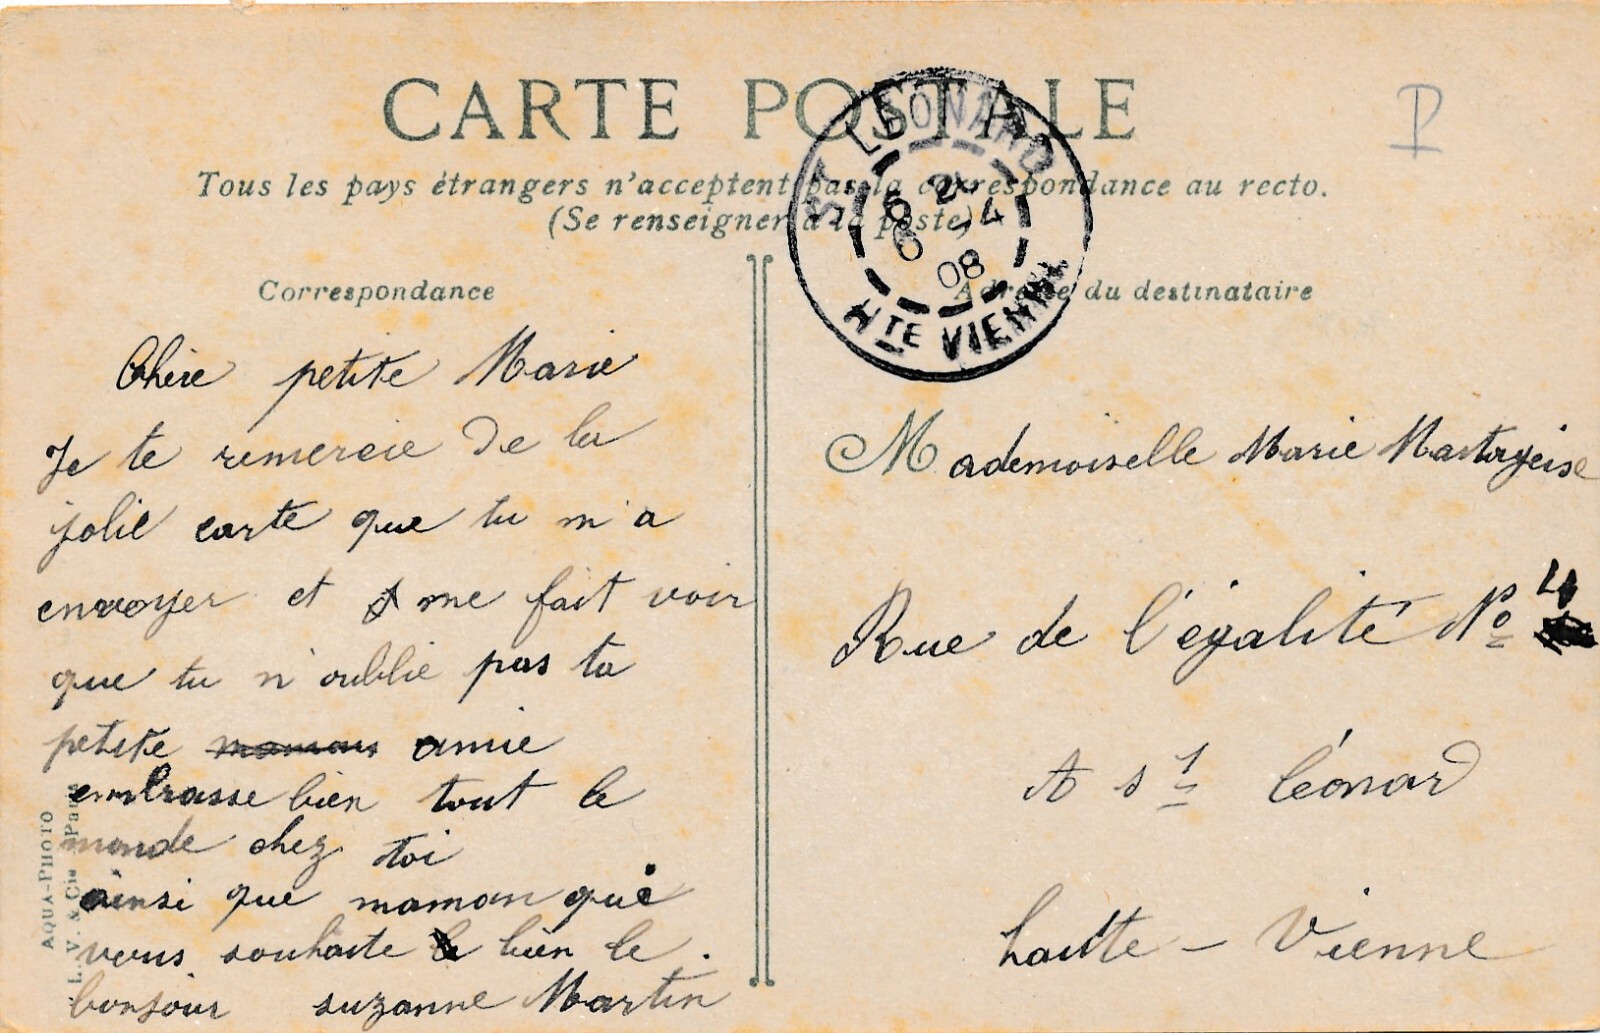 CARTE POSTALE
Tous les pays étrangers n'acceptent pas la correspondance au recto.
(Se renseigner à la poste)
P
ST LEONARD
6 2 - 4
6 08
HTE VIENNE
Correspondance
Chère petite Marie
Je te remercie de la
jolie carte que tu m'a
envoyer et me fait voir
que tu n'oublie pas ta
petite maman amie
embrasse bien tout le
monde chez toi
ainsi que maman qui
vous souhaite bien le.
bonjour suzanne Martin
Adresse du destinataire
Mademoiselle Marie
Rue de l'égalité No 4
A st Léonard
haute - Vienne
AQUA-PHOTO
L. V. & Cie Paris